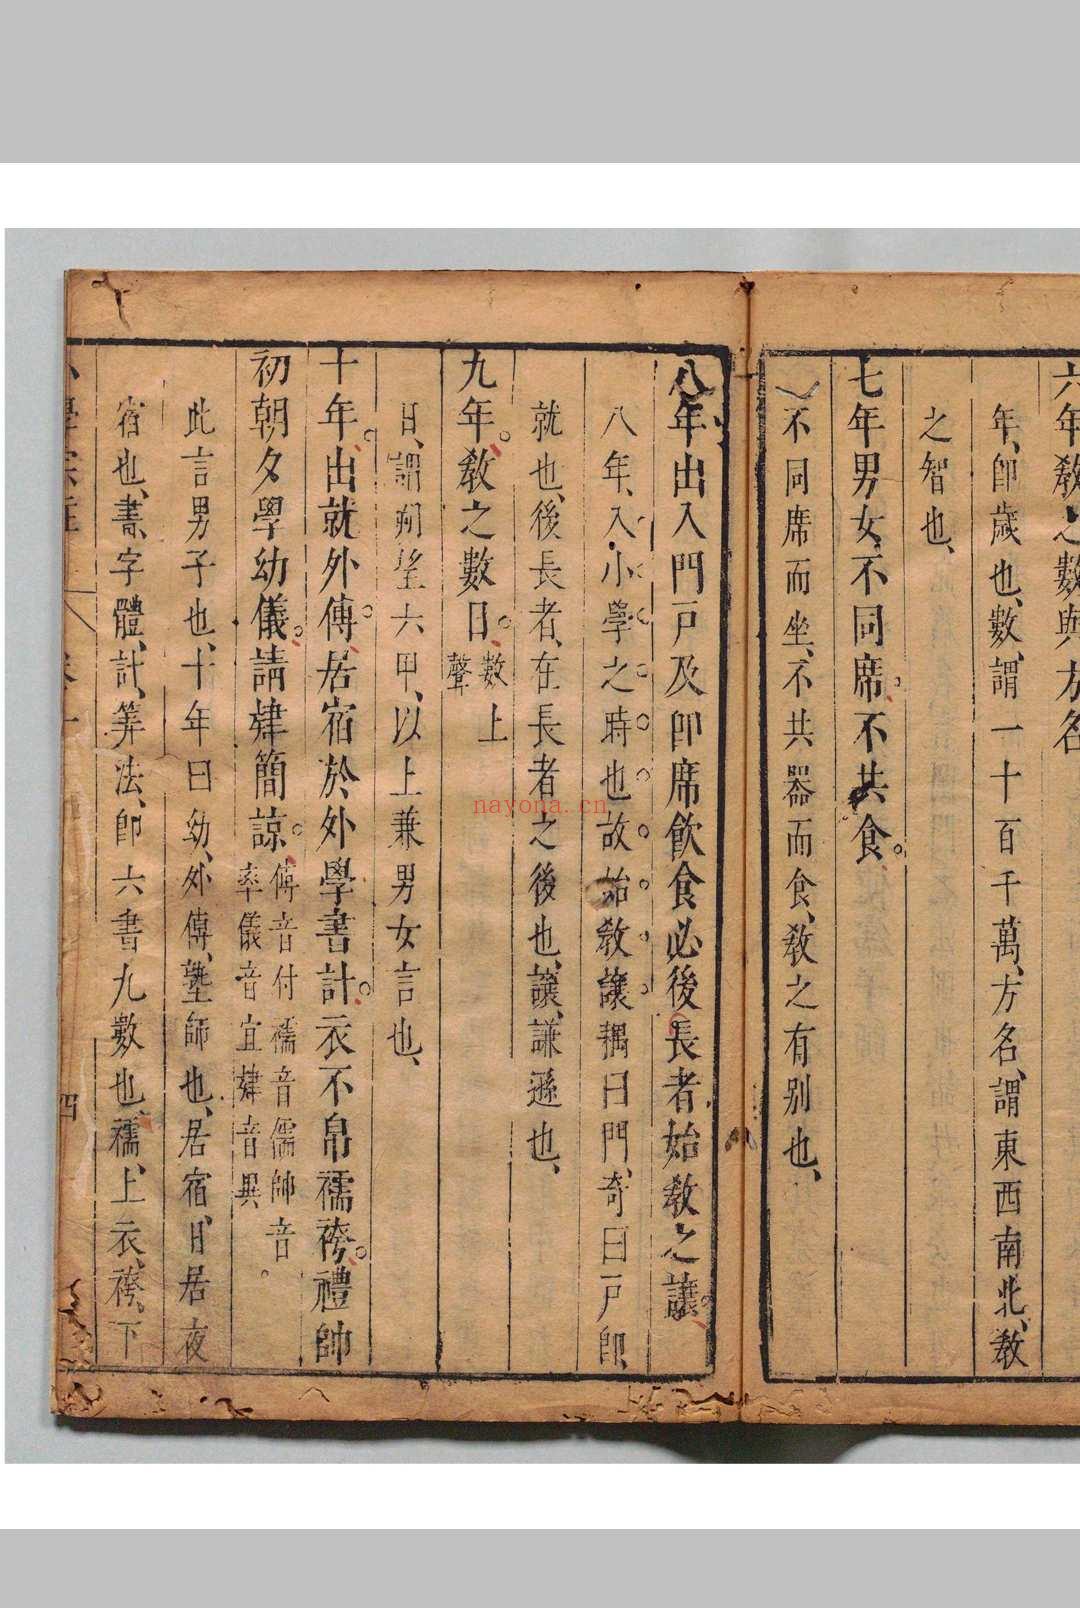 六年教之數與方名
年、卽歲也、數、謂一十百千萬、方名、謂東西南北、教
之智也、
七年男女、不同席、不共食。
不同席而坐、不共器而食、教之有别也、
八年出入門戸及卽席飮食必後長者始教之讓
八年、入小學之時也故始教讓耦曰門、奇曰戸卽、
就也、後長者、在長者之後也、讓、謙遜也、
九年。教之數日。數上聲
日、謂朔望六甲、以上兼男女言也、
十年。出就外傅。居宿於外學書計。衣不帛襦袴。禮帥
初朝夕學幼儀。請肄簡諒。傅音付襦音儒帥音率儀音宜肄音異
此言男子也、十年曰幼、外傅、塾師也、居宿、日居夜
宿也、書、字體、計、筭法、卽六書九數也、襦、上衣、袴、下
四
nayona.cn